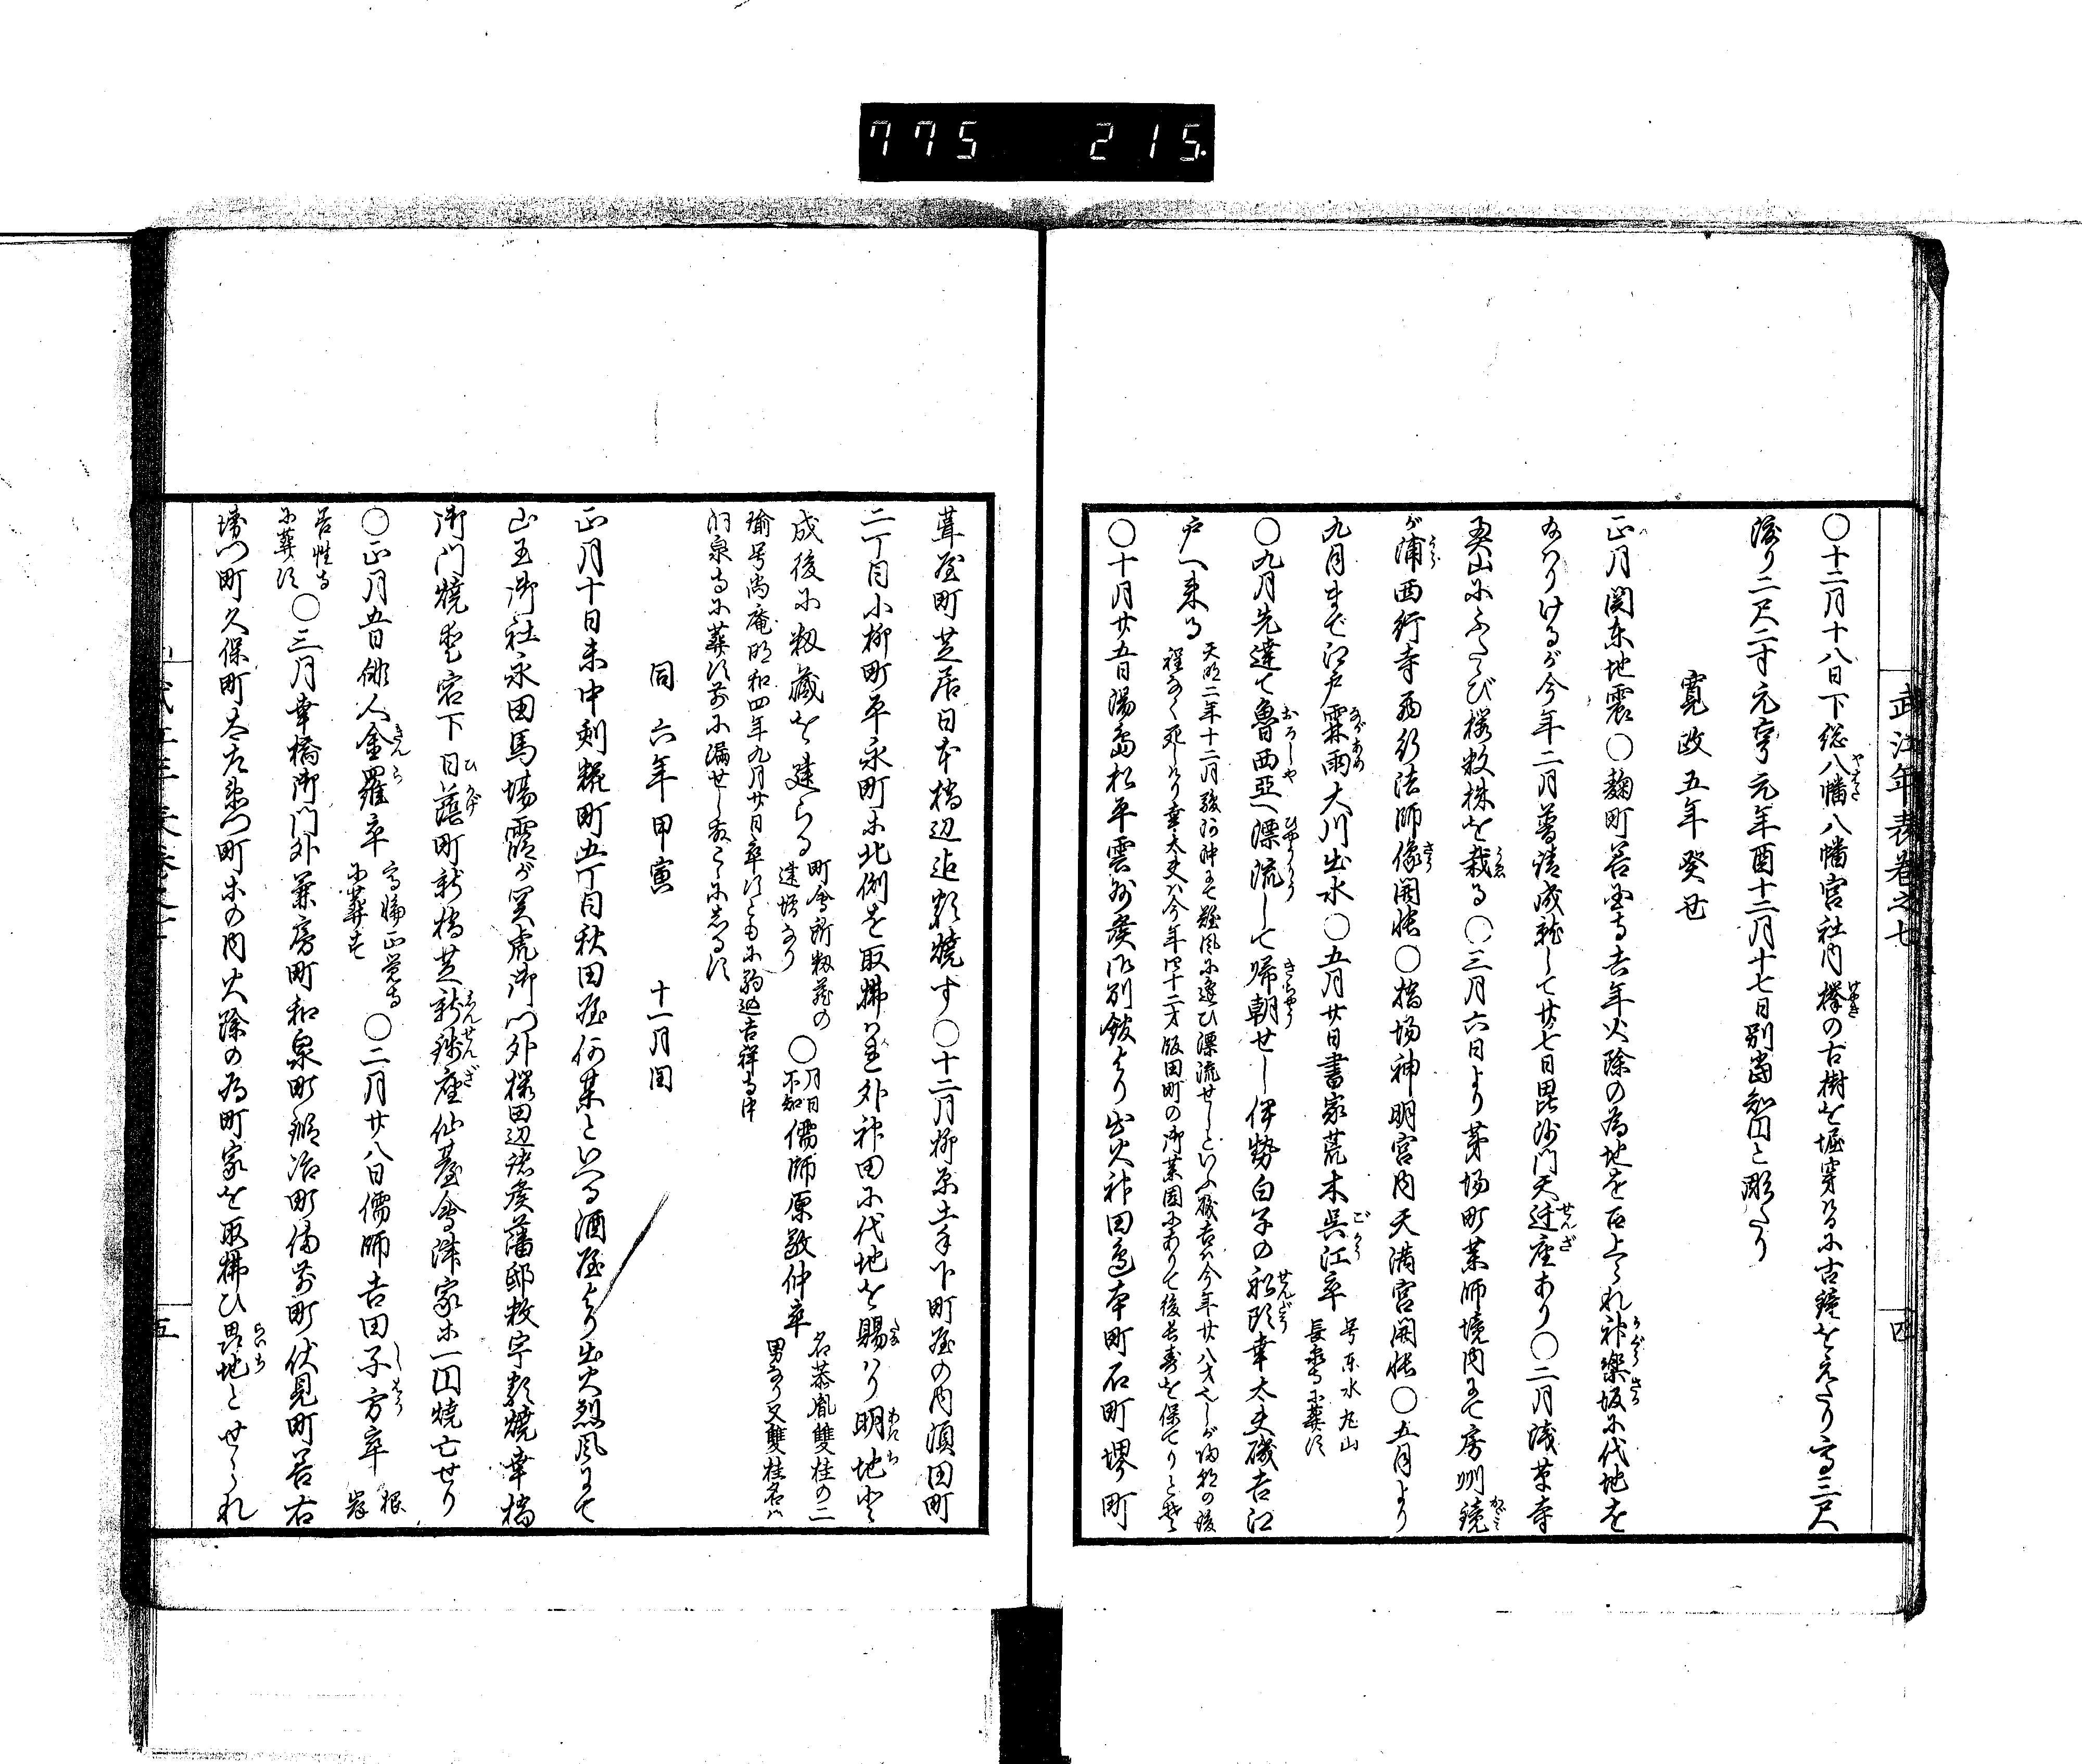 775 215.
武江年表巻之七
四
○十二月十八日下総八幡八幡宮社内欅の古樹を堀穿けるに古鐘をえたり高三尺
渡り二尺二寸元亨元年酉十二月十七日別當智円と彫たり
寛政五年癸丑
正月関東地震○麹町善国寺去年火除の為地を召上られ神楽坂に代地を
給はりけるが今年二月普請成就して廿七日毘沙門天迁座あり○二月浅草寺
奥山にふたゝび桜数株を栽る○三月六日より茅場町薬師境内にて房州鏡
が浦西行寺西行法師像開帳○橋場神明宮内天満宮開帳○五月より
九月まで江戸霖雨大川出水○五月廿日書家荒木呉江卒 号東水丸山
長泉寺に葬す
○九月先達て魯西亞へ漂流して帰朝せし伊勢白子の船頭幸太夫磯吉江
戸へ来る 天明二年十二月駿河沖にて難風に逢ひ漂流せしといふ磯吉は今年廿八才也しが帰郷の後
程なく死しけり幸太夫は今年四十二才飯田町の御薬園にありて後長寿を保てりとぞ
○十月廿五日湯島松平雲州侯御別館より出火神田邉本町石町堺町
葺屋町芝居日本橋辺迄類焼す○十二月柳原土手下町屋の内須田町
二丁目小柳町平永町等北側を取拂はれ外神田に代地を賜はり明地と
成後に籾蔵を建らる 町會所籾蔵の
建増なり ○月日
不知 儒師原敬仲卒 名恭胤雙桂の二
男なり又雙桂名は
瑜号尚庵明和四年九月廿日卒すともに駒込吉祥寺中
洞泉寺に葬す前に漏せし故こゝにしるす
同 六年甲寅 十一月閏
正月十日未中刻糀町五丁目秋田屋何某といへる酒屋より出火烈風にて
山王御社永田馬場霞が関虎御門外桜田辺諸侯藩邸数宇類焼幸橋
御門焼愛宕下日蔭町新橋芝新銭座仙臺會津家等一円焼亡せり
○正月五日俳人金羅卒 高輪正覚寺
に葬す ○二月廿八日儒師吉田子方卒 根岸
善性寺
に葬す ○三月幸橋御門外兼房町和泉町鍛冶町備前町伏見町善右
衛門町久保町太左衛門町等の内火除の為町家を取拂ひ畾地とせられ
五